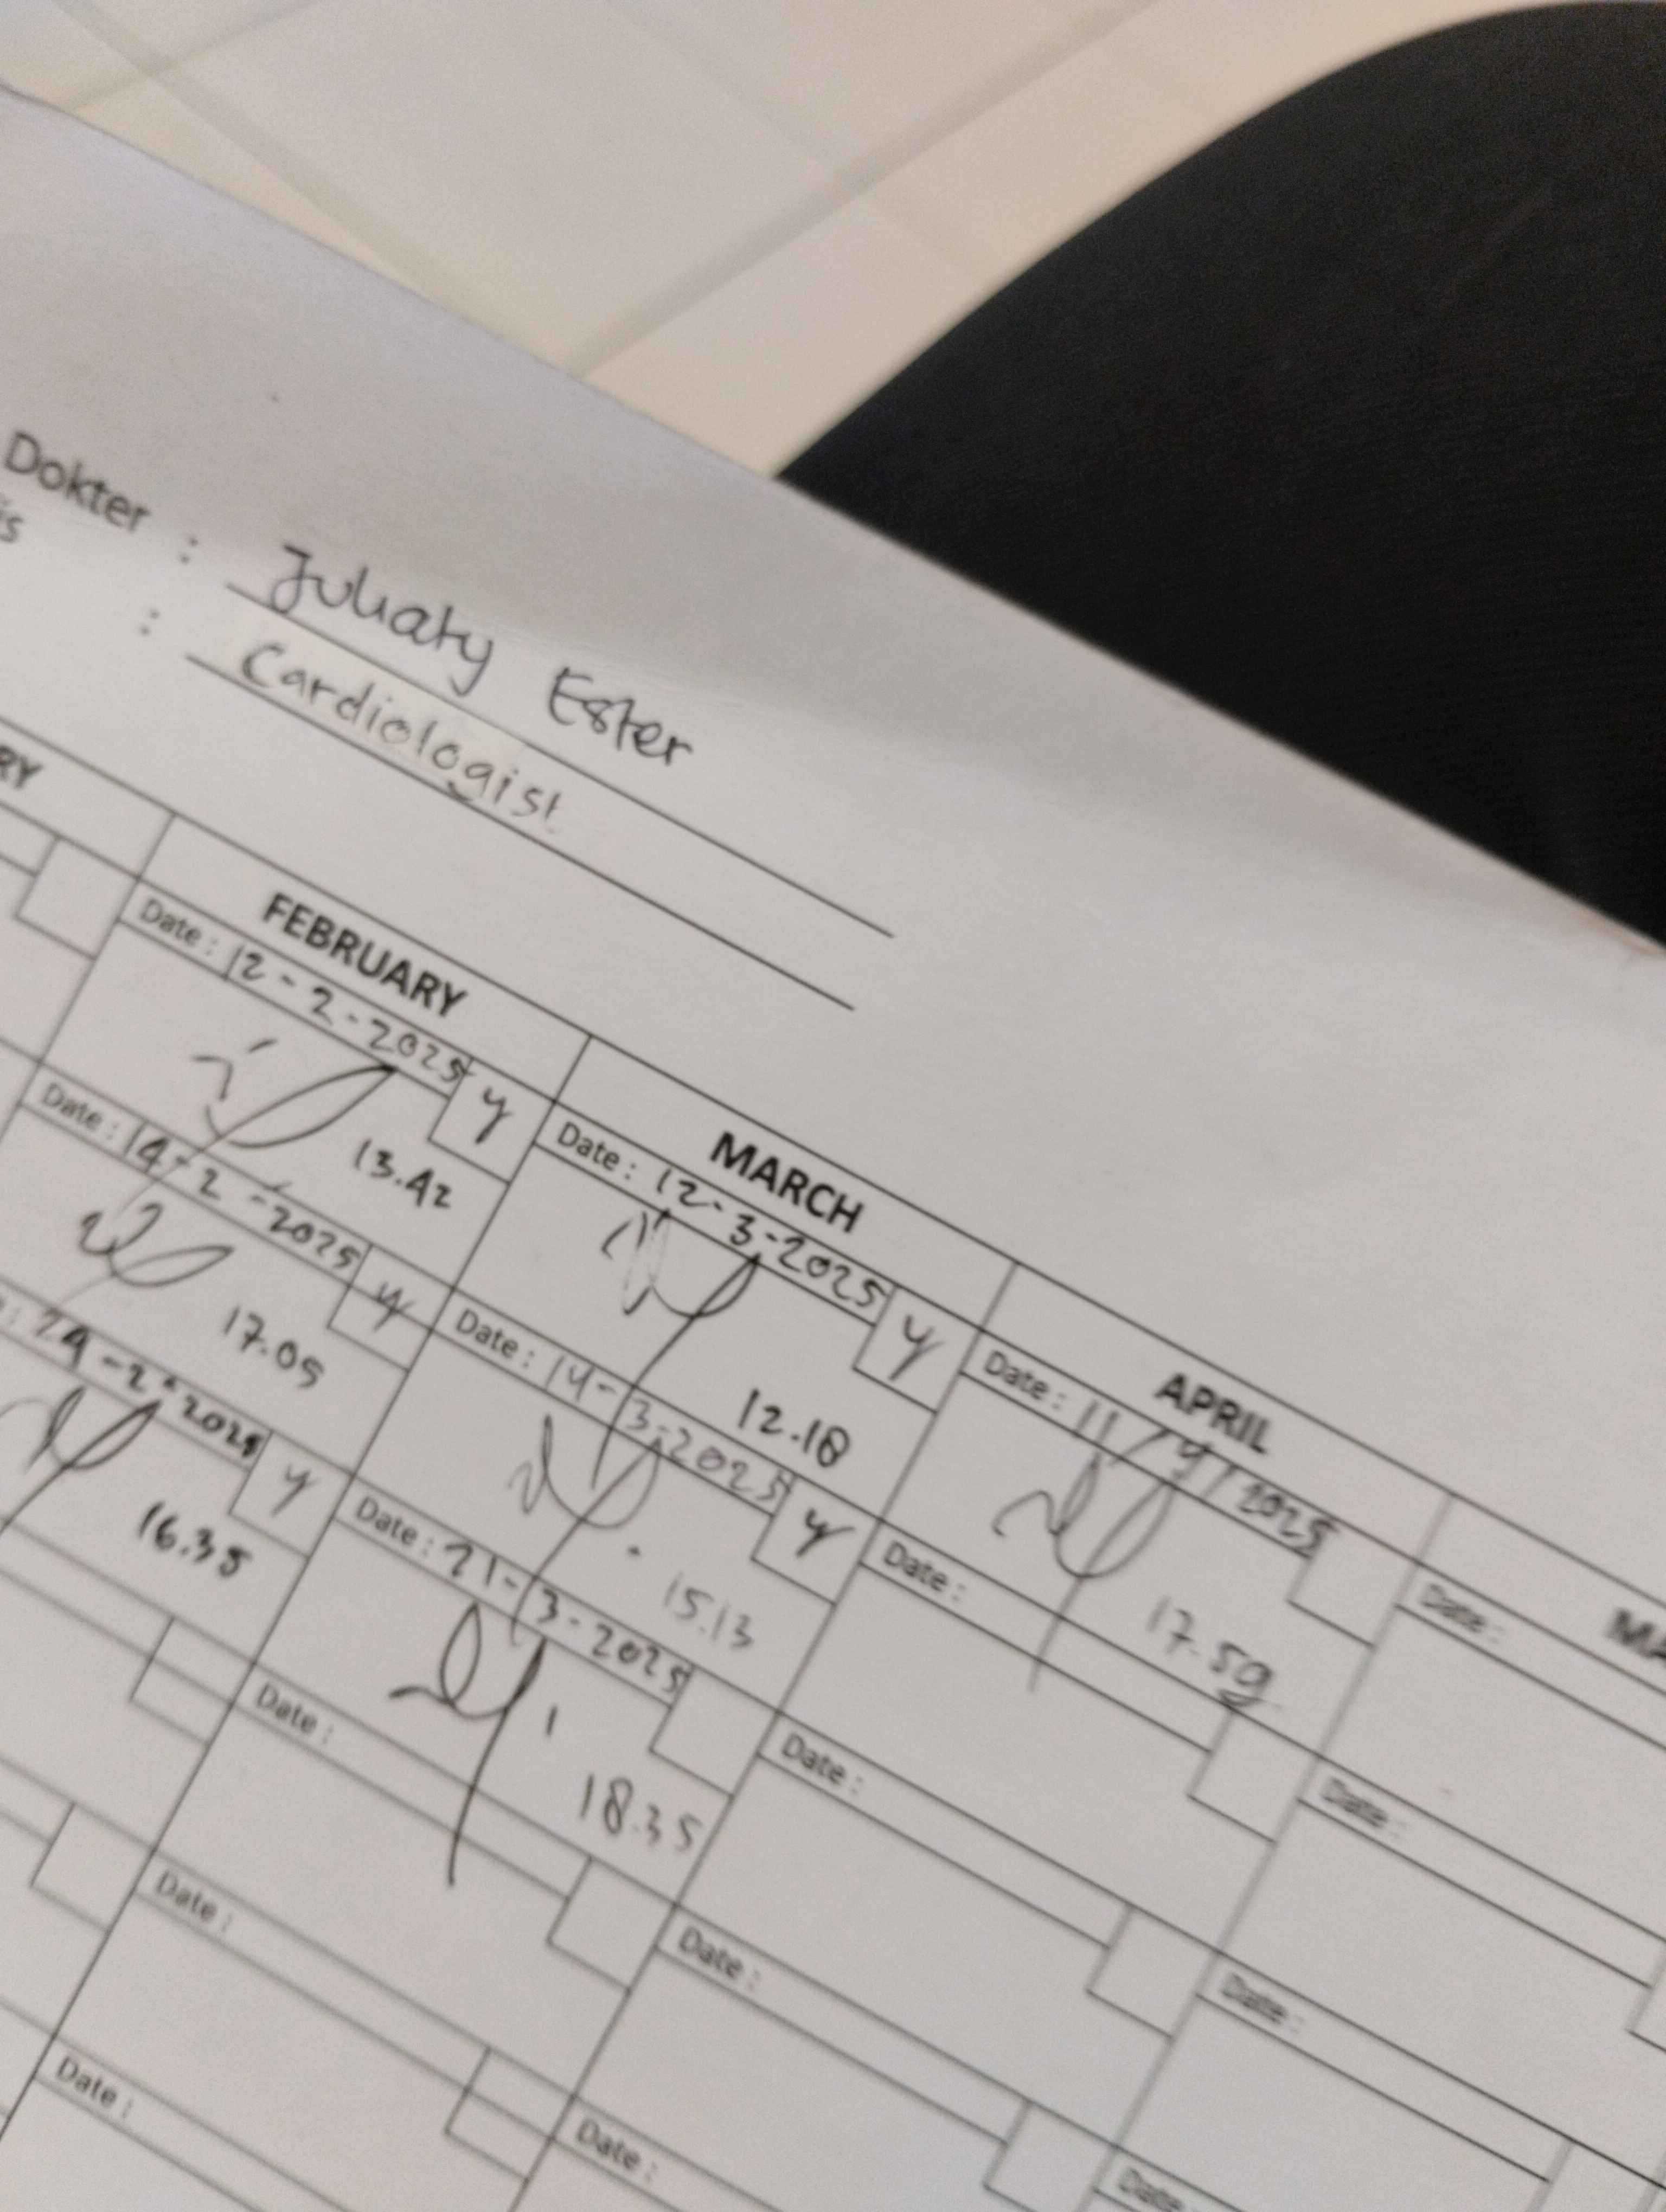 Dokter : Juliaty Ester
is : Cardiologist
RY FEBRUARY MARCH APRIL MA
Date : 12-2-2025 y
13.42
Date : 14-2-2025 y
17.05
24-2-2025 y
16.35
Date : 12-3-2025 y
12.18
Date : 14-3-2025 y
15.13
Date : 21-3-2025
18.35
Date :
Date :
Date :
Date : 11/4/2025
17.59
Date :
Date :
Date :
Date :
Date :
Date :
Date :
Date :
Date :